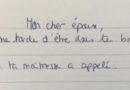 Mon cher époux,
me tarde d'être dans te br
ta maîtresse a appelé.